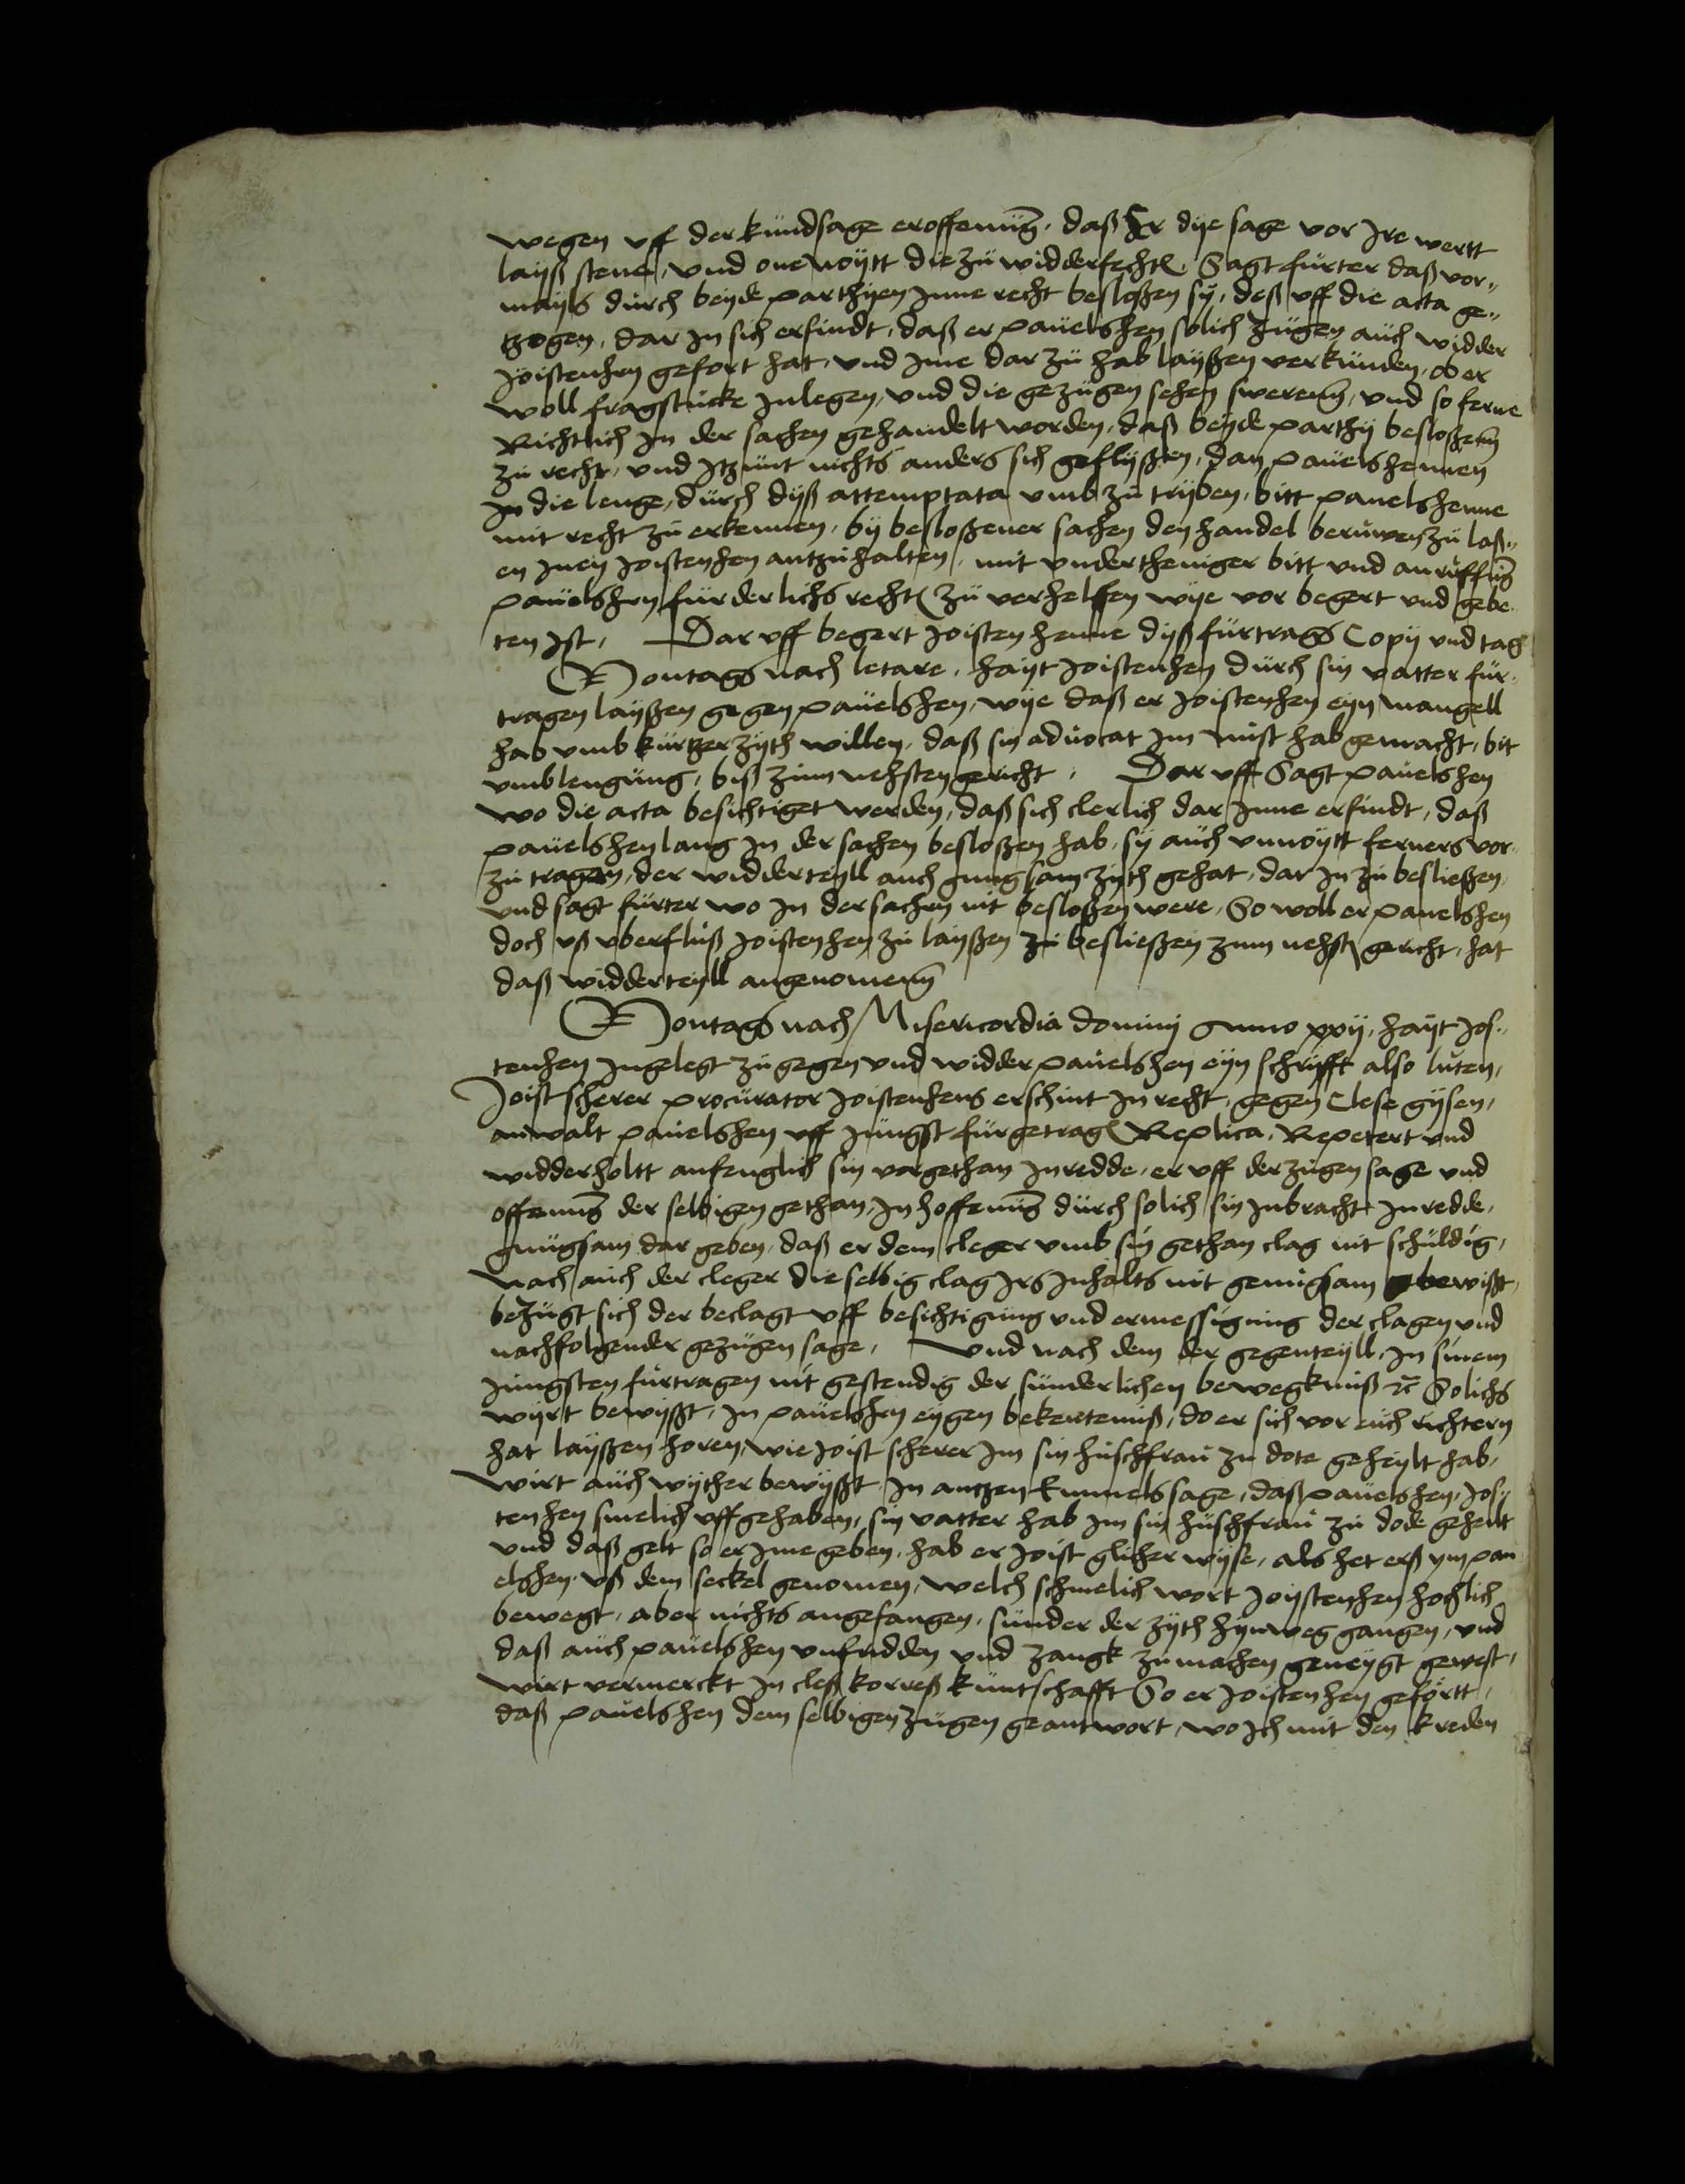 wegen uff der kundsage eroffenung, daß Er dye sage vor Jre wertt
layß stene, und one noytt die zu widderfechten, Sagt furter daß vor„
mayls durch beyde parthyen Jnne recht besloßen sy, deß uff die acta ge„
tzogen, dar Jn sich erfindt, daß er pauelshen solich zugen auch widder
Joistenhen gefort hat, und Jme dar zu hab layßen verkunden, ob er
woll fragstucke Jnlegen, und die gezugen sehen sweren, und so ferne
Richtlich Jn der sachen gehandelt worden, daß beyde parthy besloßen
zu recht, und Jtzunt nichts anders sich geflyßen, dan pauelshennen
Jn die lenge, durch dyß attemptata umb zu tryben, bitt pauelshenne
mit recht zu erkennen, by besloßener sachen den handel beruwen zu laß„
en Jnen Joistenhen antzuhalten, mit undertheniger bitt und anruffung
pauelshen furderlichs rechten zu verhelffen wye vor begert und gebe„
ten Jst, Dar uff begert Joistenhenne dyß furtrags Copy und tag
Montags nach letare, hayt Joistenhen durch sin vatter fur„
tragen layßen gegen pauelshen, wye daß er Joistenhen eyn mangell
hab umb kurtzer zyth willen, daß sin advocat Jm nuist hab gemacht, bit
umb lengung, biß zum nehsten gericht, Dar uff Sagt pauelshen
wo die acta besichtiget werden, daß sich clerlich dar Jnne erfindt, daß
pauelshen lang Jn der sachen besloßen hab, sy auch unnoytt ferners vor„
zu tragen, der widderteyll auch gnugsam zyth gehat, dar Jn zu besließen,
und sagt furter wo Jn der sachen nit besloßen were, So woll er pauelshen
doch uß uberfluß Joistenhen zu layßen zu besließen zum nehsten gericht, hat
daß widderteyll angenomen
Montags nach Misericordia dominj Anno xxij, hayt Jos„
tenhen Jngelegt zu gegen und widder pauelshen eyn schryfft also luten,
Joist scherer procurator Joistenhens erschint Jn recht, gegen Clese gysen,
anwalt pauelshen uff Jungst furgetragen Replica, Repetert und
widderholtt anfenglich sin vorgethan Jnredde, er uff der zugen sage und
offenung der selbigen gethan, Jn hoffenung durch solich sin Jnbracht Jnredde,
gnugsam dar geben, daß er dem cleger umb sin gethan clag nit schuldig,
Nach auch der cleger die selbig clag Jrs Jnhalts nit genugsam bewißt,
bezugt sich der beclagt uff besichtigung und ermessigung der clagen und
nachfolgender gezugen sage, Und nach dem der gegenteyll, Jn sinem
Jungsten furtragen nit gestendig der sunderlichen bewegkniß etc Solichs
wyrt bewyßt, Jn pauelshen eygen bekentemiß, do er sich vor euch richtern
hat layßen horen, wie Joist scherer Jm sin huschfrau zu dote geheylt hab,
wirt auch wyther bewyßt Jn antzen kunnels sage, daß pauelshen, Jos„
tenhen smelich uffgehaben, sin vatter hab Jm sin huschfrau zu dode geheilt
und daß gelt so er Jme geben, hab er Joist glicher wyse, als het erß ym pau
elshen, uß dem seckel genomen, welch schmelich wort Joystenhen hochlich
bewegt, aber nichts angefangen, sunder der zyth hynweg gangen, und
daß auch pauelshen unfridden und zangk zu machen geneygt gewest,
wirt vermerckt Jn cleß korreß kuntschafft So er Joistenhen gefortt,
daß pauelshen dem selbigen zugen geantwort, wo Jch mit den kreden